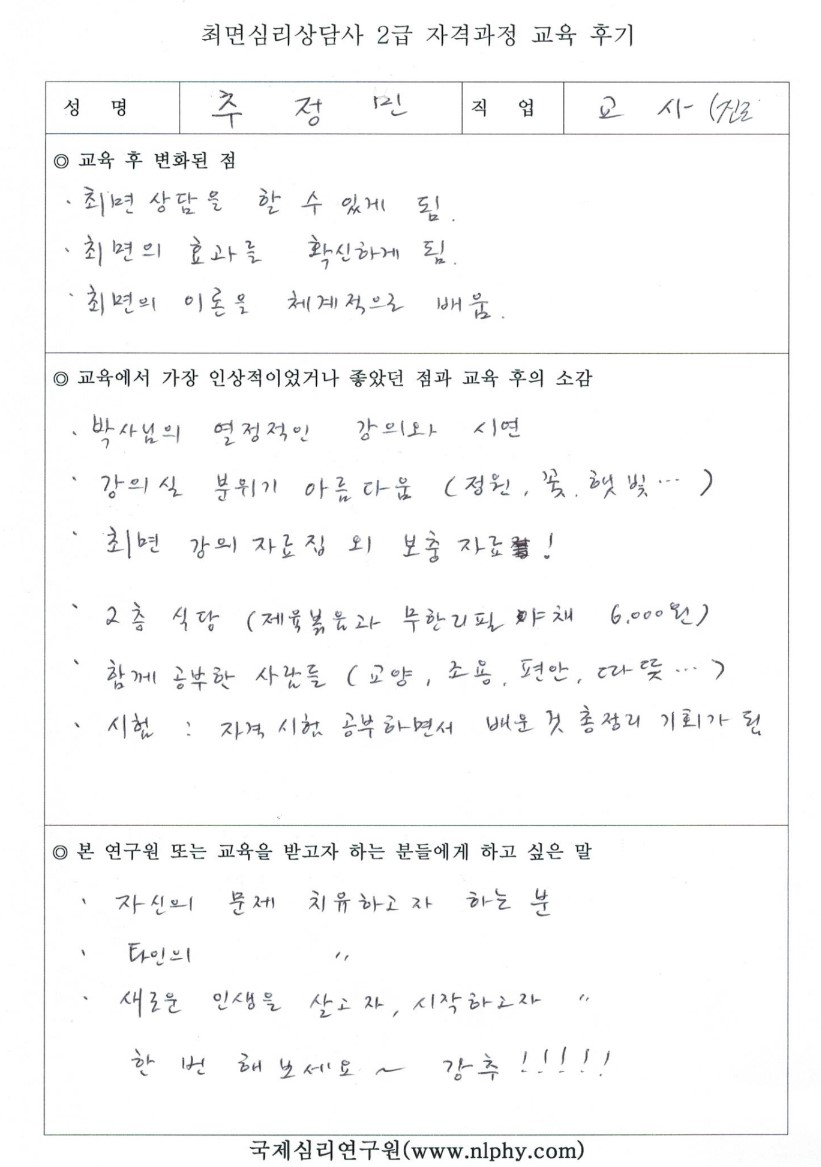 최면심리상담사 2급 자격과정 교육 후기
성 명 추 정 민 직 업 교 사 (진로
◎ 교육 후 변화된 점
· 최면 상담을 할 수 있게 됨.
· 최면의 효과를 확신하게 됨.
· 최면의 이론을 체계적으로 배움.
◎ 교육에서 가장 인상적이었거나 좋았던 점과 교육 후의 소감
· 박사님의 열정적인 강의와 시연
· 강의실 분위기 아름다움 (정원, 꽃, 햇빛…)
· 최면 강의 자료집 외 보충 자료!
· 2층 식당 (제육볶음과 무한리필 야채 6,000원)
· 함께 공부한 사람들 (교양, 조용, 편안, 따뜻…)
· 시험 : 자격 시험 공부하면서 배운 것 총정리 기회가 됨
◎ 본 연구원 또는 교육을 받고자 하는 분들에게 하고 싶은 말
· 자신의 문제 치유하고자 하는 분
· 타인의 〃
· 새로운 인생을 살고자, 시작하고자 〃
한 번 해보세요 ~ 강추 !!!!!
국제심리연구원(www.nlphy.com)